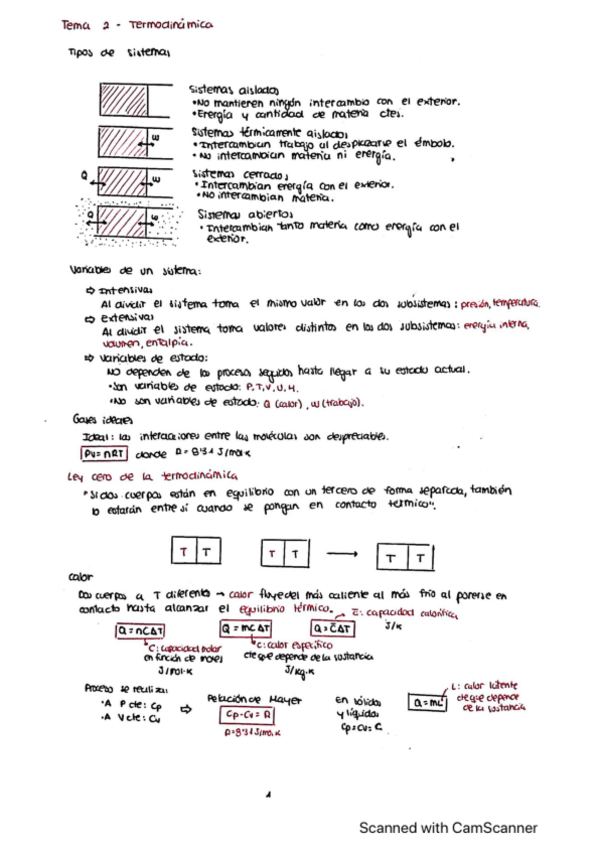 Tema 2 - Termodinámica
Tipos de sistemas
Sistemas aislados
•No mantienen ningún intercambio con el exterior.
•Energía y cantidad de materia ctes.
Sistemas térmicamente aislados
•Intercambian trabajo al desplazarse el émbolo.
•No intercambian materia ni energía.
W
Sistemas cerrados
•Intercambian energía con el exterior.
•No intercambian materia.
Q
W
Sistemas abiertos
•Intercambian tanto materia como energía con el
exterior.
Q
W
Variables de un sistema:
⇨ Intensivas
Al dividir el sistema toma el mismo valor en los dos subsistemas: presión, temperatura.
⇨ extensivas
Al dividir el sistema toma valores distintos en los dos subsistemas: energía interna,
volumen, entalpía.
⇨ Variables de estado:
NO dependen de los procesos seguidos hasta llegar a su estado actual.
•Son variables de estado: P, T, V, U, H.
•No son variables de estado: Q (calor), W (trabajo).
Gases ideales
Ideal: las interacciones entre las moléculas son despreciables.
PV=nRT donde R=8'31 J/mol·K
Ley cero de la termodinámica
"Si dos cuerpos están en equilibrio con un tercero de forma separada, también
lo estarán entre sí cuando se pongan en contacto térmico".
T T T T → T T
Calor
Dos cuerpos a T diferente → calor fluye del más caliente al más frío al ponerse en
contacto hasta alcanzar el equilibrio térmico.
C̄: capacidad calorífica
J/K
Q=nCΔT Q=mcΔT Q=C̄ΔT
C: capacidad molar
en función de moles
J/mol·K
C: calor específico
cte que depende de la sustancia
J/kg·K
Proceso se realiza:
•A P cte: Cp
•A V cte: Cv
⇨
Relación de Mayer
Cp-Cv=R
R=8'31 J/mol·K
En sólidos
y líquidos
Cp=Cv=C
Q=mL
L: calor latente
cte que depende
de la sustancia
1
Scanned with CamScanner